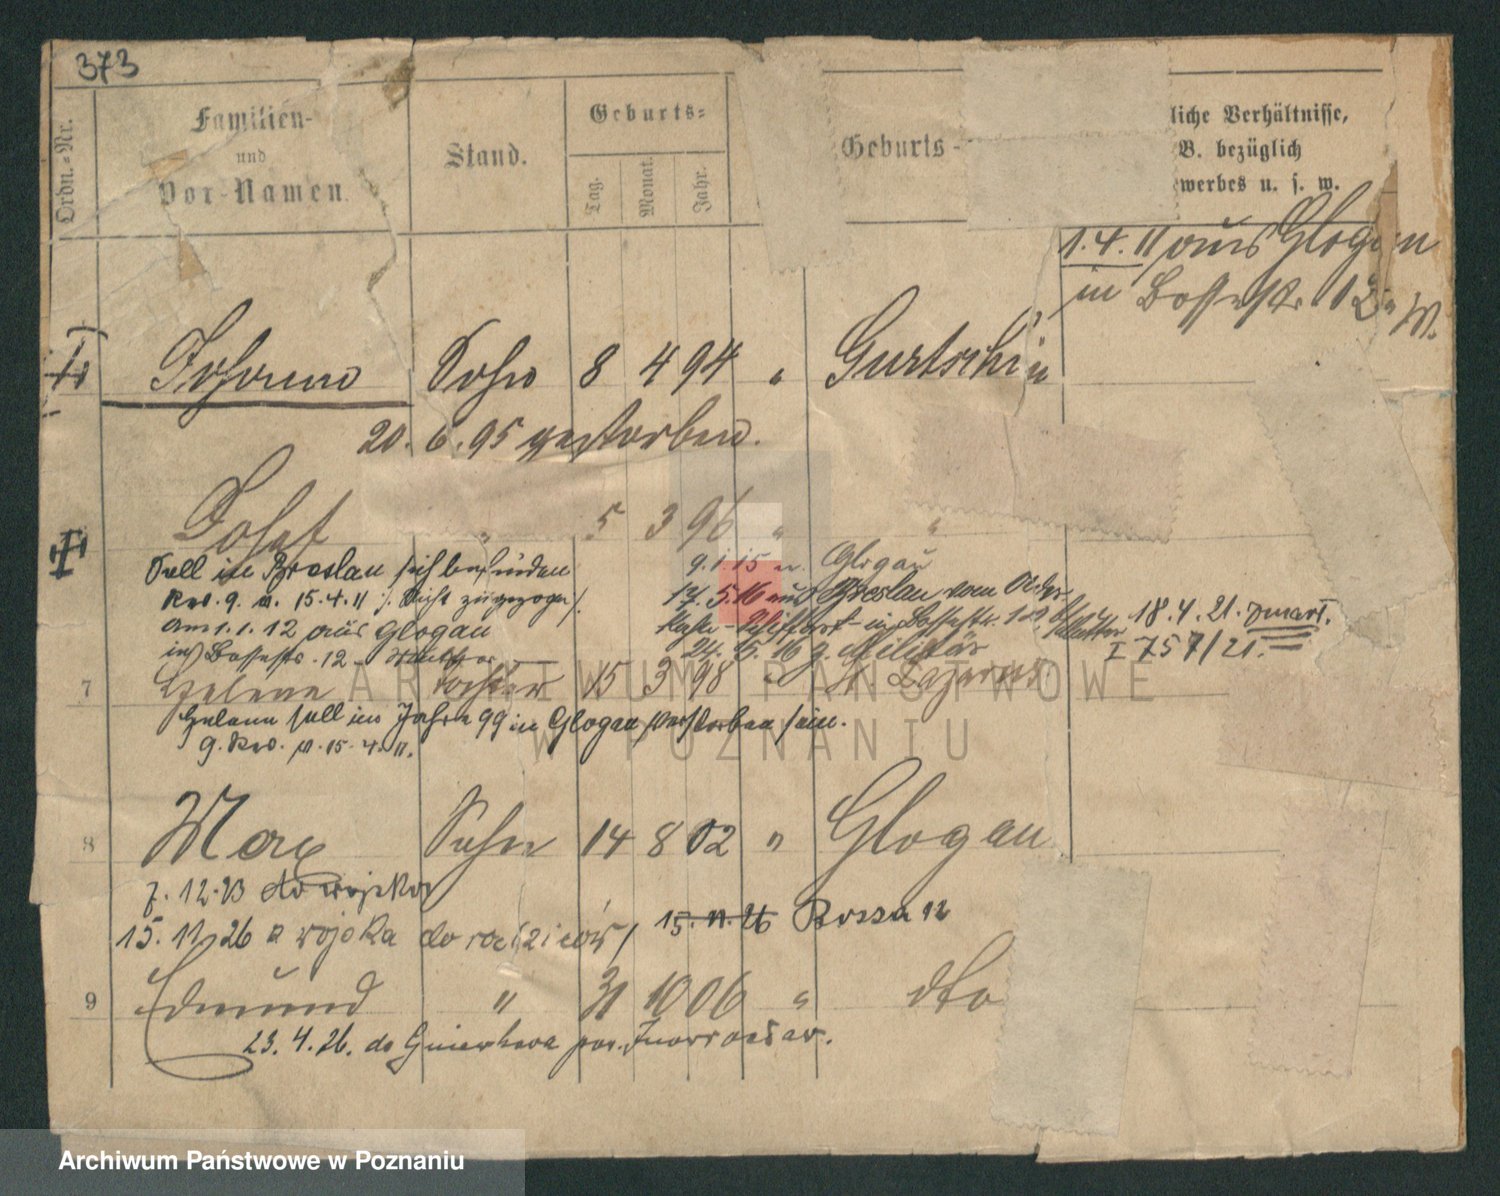 373
Ordn.-Nr.
Familien-
und
Vor-Namen.
Stand.
Geburts-
Tag.
Monat.
Jahr.
Geburts-
liche Verhältnisse,
B. bezüglich
werbes u. s. w.
1.4.11 aus Glogau
in 12 W.
Johann Sohn 8 4 94 " Gurtschin
20. 6. 95 gestorben.
Josef " 5 3 96 " "
Soll in Breslau sich befinden
Rev. 9. v. 15.4.11 Nicht zugezogen
am 1.1.12 aus Glogau
in 12
9.1.15 n. Glogau
17.5.16 aus Breslau vom
24. 5. 16 z. Militär
18.4.21. zmarł.
I 757/21.
7 Helene Tochter 15 3 98 " St Lazarus
Helene soll im Jahre 99 in Glogau verstorben sein.
g. Rev. v. 15. 4. 11.
8 Max Sohn 14 8 02 " Glogau
7. 12. 23 do wojska
15. 11. 26 z wojska do rodziców / 15. 11. 26 Rossa 12
9 Edmund " 31 10 06 " dto
23. 4. 26. do Gniewkowa pow. Inowrocław.
ARCHIWUM PAŃSTWOWE
W POZNANIU
Archiwum Państwowe w Poznaniu